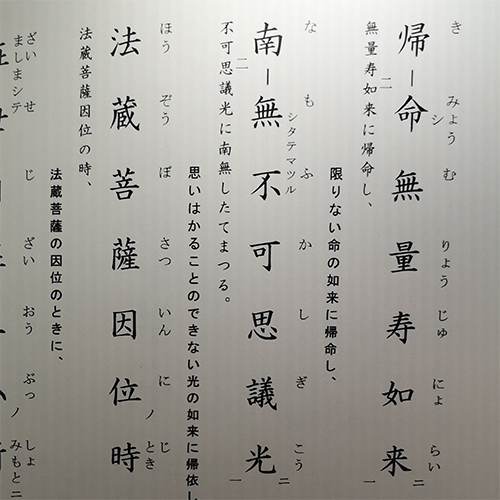 き みょう む りょう じゅ にょ らい
帰命無量寿如来
シ 二 一 ニ
無量寿如来に帰命し、
限りない命の如来に帰命し、
な も ふ か し ぎ こう
南無不可思議光
シタテマツル 二 一 ニ
不可思議光に南無したてまつる。
思いはかることのできない光の如来に帰依し
ほう ぞう ぼ さつ いん に じ
法蔵菩薩因位時
ノ とき
法蔵菩薩因位の時、
法蔵菩薩の因位のときに、
ざい せ じ ざい おう ぶつ しょ
ましまシテ ノ みもとニ